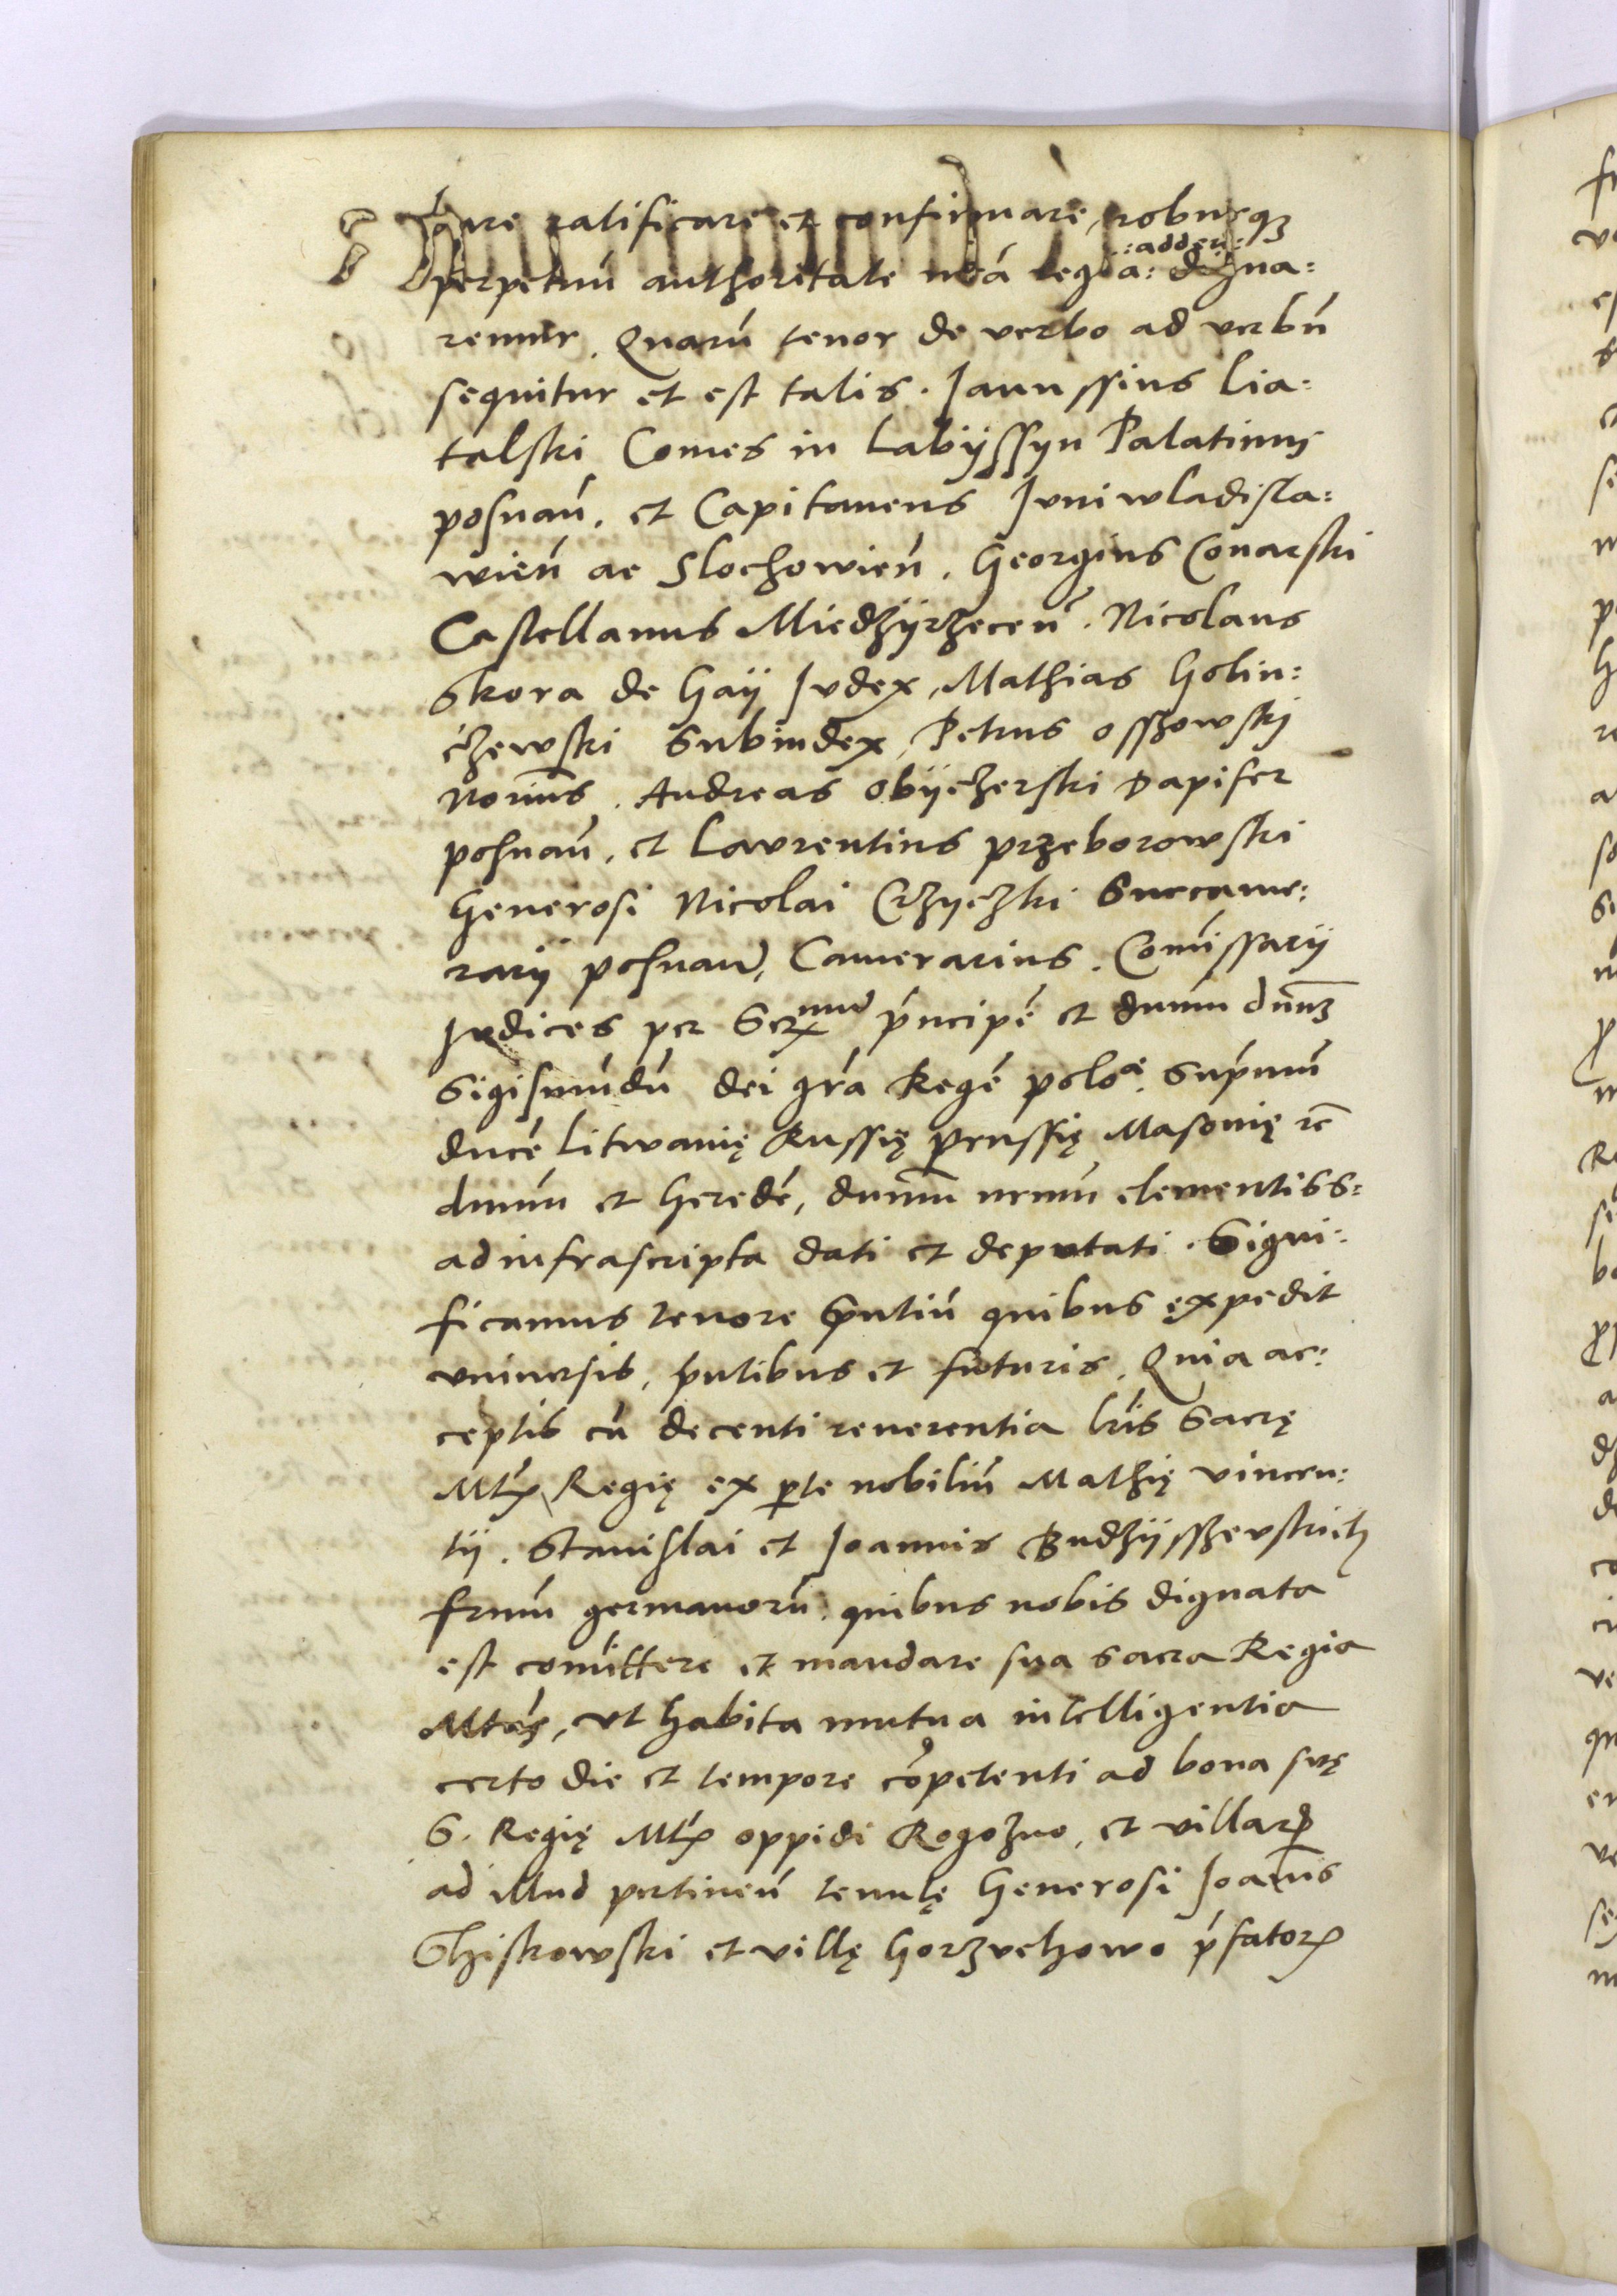 bare ratificare et confirmare, roburq꜠
perpetuū authoritate nr̄ā regia: :addere: digna:
remur. Quarū tenor de verbo ad verbū
sequitur et est talis. Ianussius Lia:
talski Comes in Labÿssyn Palatinus
posnań. et Capitaneus Iuniwladisla:
wień ac Slochowień. Georgius Conarski
Castellanus Miedzÿrzeceń. Nicolaus
Skora de Gaÿ Iudex, Mathias Golin:
czewski Subiudex, Petrus Osszowskj
Notriūs. Andreas Obÿczerski Dapifer
posnań. et Laurentius przeborowski
Generosi Nicolai Crzyczki Succame:
rarÿ posnań, Camerarius. Com̄issarÿ
Iudices per Serx mū pŕncipē et dnūm dnūm
Sigismūdū dei grá Regē poloa. Supŕmū
ducē Litwanię Russię prussię Masouię rc̄
dnūm et heredē, dnūm nrūm clementiss:
ad infrascripta dati et deputati. Signi:
ficamus tenore pn̄tiū quibus expedit
vniuersis, pn̄tibus et futuris. Quia ac:
ceptis cū decenti reuerentia lr̄is Sacrę
Mtꝭ Regię ex pte nobiliū Mathię vincen:
tÿ. Stanislai et Ioannis Budzÿsszewskich
frūm germanorū. quibus nobis dignata
est com̄ittere et mandare sua sacra Regia
Mtás, vt habita mutua intelligentia
certo die et tempore cōpetenti ad bona suę
S. Regię Mtꝭ oppidi Rogozno, et villarꝝ
ad illud pertineń tenutę Generosi Ioan̄is
Thiskowski et villę Gorzuchowo pŕfatorꝝ